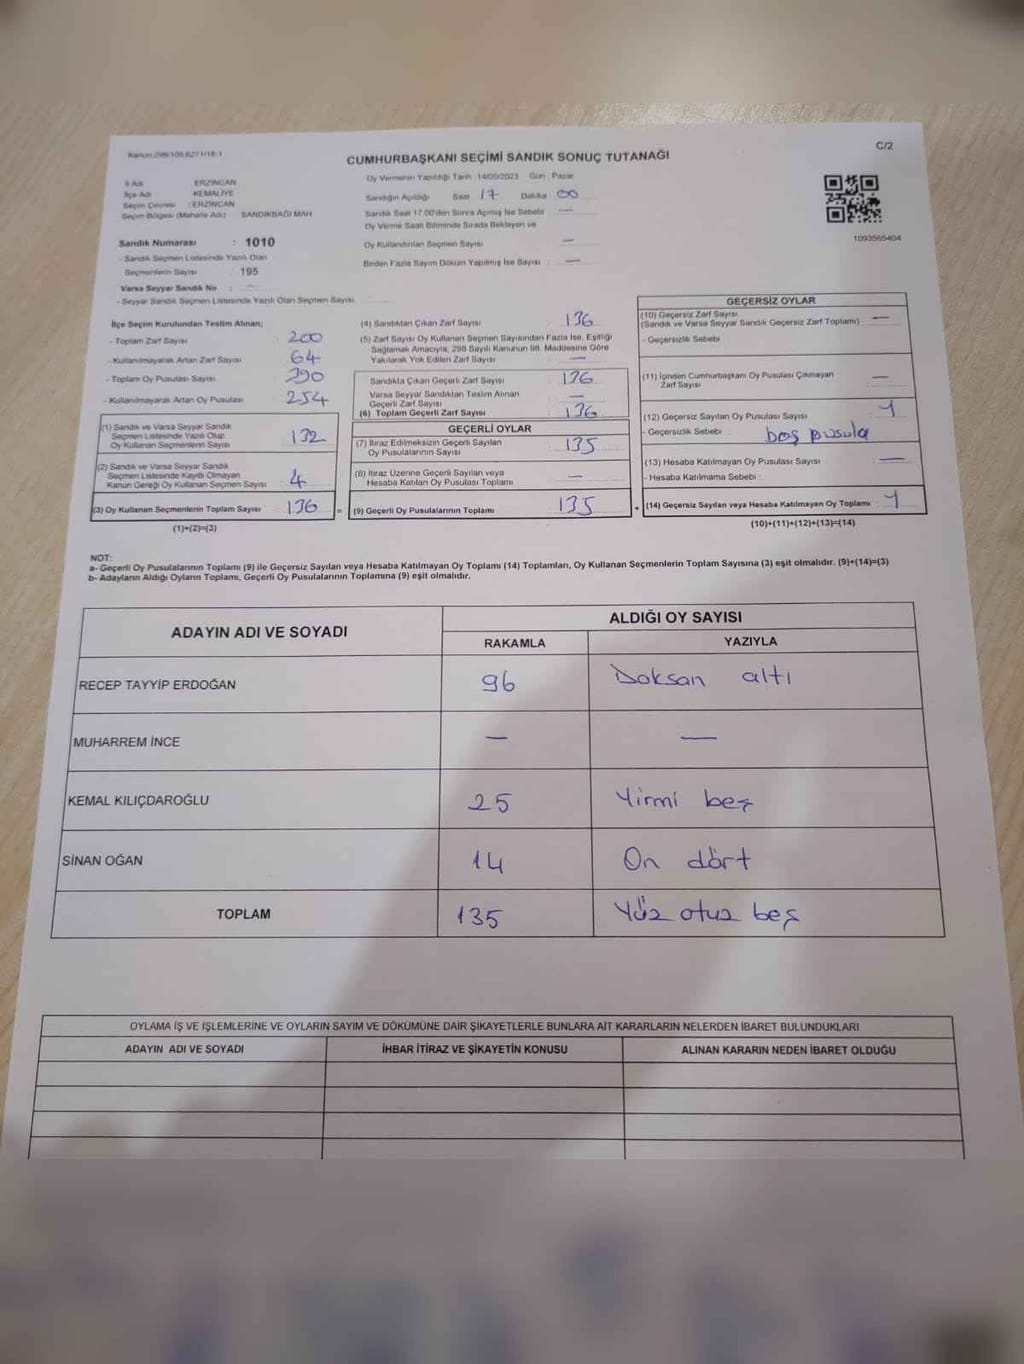 C/2
CUMHURBAŞKANI SEÇİMİ SANDIK SONUÇ TUTANAĞI
İl Adı ERZİNCAN
İlçe Adı KEMALİYE
Seçim Çevresi : ERZİNCAN
Seçim Bölgesi (Mahalle Adı) SANDIKBAĞI MAH
Sandık Numarası : 1010
- Sandık Seçmen Listesinde Yazılı Olan
Seçmenlerin Sayısı 195
Varsa Seyyar Sandık No : —
- Seyyar Sandık Seçmen Listesinde Yazılı Olan Seçmen Sayısı
Oy Vermenin Yapıldığı Tarih 14/05/2023 Gün : Pazar
Sandığın Açıldığı Saat 17 Dakika 00
Sandık Saat 17.00'den Sonra Açılmış İse Sebebi —
Oy Verme Saati Bitiminde Sırada Bekleyen ve
Oy Kullandırılan Seçmen Sayısı —
Birden Fazla Sayım Döküm Yapılmış İse Sayısı —
1093565404
İlçe Seçim Kurulundan Teslim Alınan;
- Toplam Zarf Sayısı 200
- Kullanılmayarak Artan Zarf Sayısı 64
- Toplam Oy Pusulası Sayısı 390
- Kullanılmayarak Artan Oy Pusulası 254
(1) Sandık ve Varsa Seyyar Sandık
Seçmen Listesinde Yazılı Olup
Oy Kullanan Seçmenlerin Sayısı 132
(2) Sandık ve Varsa Seyyar Sandık
Seçmen Listesinde Kayıtlı Olmayan
Kanun Gereği Oy Kullanan Seçmen Sayısı 4
(3) Oy Kullanan Seçmenlerin Toplam Sayısı 136
(1)+(2)=(3)
(4) Sandıktan Çıkan Zarf Sayısı 136
(5) Zarf Sayısı Oy Kullanan Seçmen Sayısından Fazla İse, Eşitliği
Sağlamak Amacıyla, 298 Sayılı Kanunun 98. Maddesine Göre
Yakılarak Yok Edilen Zarf Sayısı —
Sandıkta Çıkan Geçerli Zarf Sayısı 136
Varsa Seyyar Sandıktan Teslim Alınan
Geçerli Zarf Sayısı —
(6) Toplam Geçerli Zarf Sayısı 136
GEÇERLİ OYLAR
(7) İtiraz Edilmeksizin Geçerli Sayılan
Oy Pusulalarının Sayısı 135
(8) İtiraz Üzerine Geçerli Sayılan veya
Hesaba Katılan Oy Pusulası Toplamı —
= (9) Geçerli Oy Pusulalarının Toplamı 135
GEÇERSİZ OYLAR
(10) Geçersiz Zarf Sayısı
(Sandık ve Varsa Seyyar Sandık Geçersiz Zarf Toplamı) —
- Geçersizlik Sebebi
(11) İçinden Cumhurbaşkanı Oy Pusulası Çıkmayan
Zarf Sayısı —
(12) Geçersiz Sayılan Oy Pusulası Sayısı 1
- Geçersizlik Sebebi : boş pusula
(13) Hesaba Katılmayan Oy Pusulası Sayısı —
- Hesaba Katılmama Sebebi :
+ (14) Geçersiz Sayılan veya Hesaba Katılmayan Oy Toplamı 1
(10)+(11)+(12)+(13)=(14)
NOT:
a- Geçerli Oy Pusulalarının Toplamı (9) ile Geçersiz Sayılan veya Hesaba Katılmayan Oy Toplamı (14) Toplamları, Oy Kullanan Seçmenlerin Toplam Sayısına (3) eşit olmalıdır. (9)+(14)=(3)
b- Adayların Aldığı Oyların Toplamı, Geçerli Oy Pusulalarının Toplamına (9) eşit olmalıdır.
ADAYIN ADI VE SOYADI
ALDIĞI OY SAYISI
RAKAMLA YAZIYLA
RECEP TAYYİP ERDOĞAN 96 Doksan altı
MUHARREM İNCE — —
KEMAL KILIÇDAROĞLU 25 Yirmi beş
SİNAN OĞAN 14 On dört
TOPLAM 135 Yüz otuz beş
OYLAMA İŞ VE İŞLEMLERİNE VE OYLARIN SAYIM VE DÖKÜMÜNE DAİR ŞİKAYETLERLE BUNLARA AİT KARARLARIN NELERDEN İBARET BULUNDUKLARI
ADAYIN ADI VE SOYADI İHBAR İTİRAZ VE ŞİKAYETİN KONUSU ALINAN KARARIN NEDEN İBARET OLDUĞU